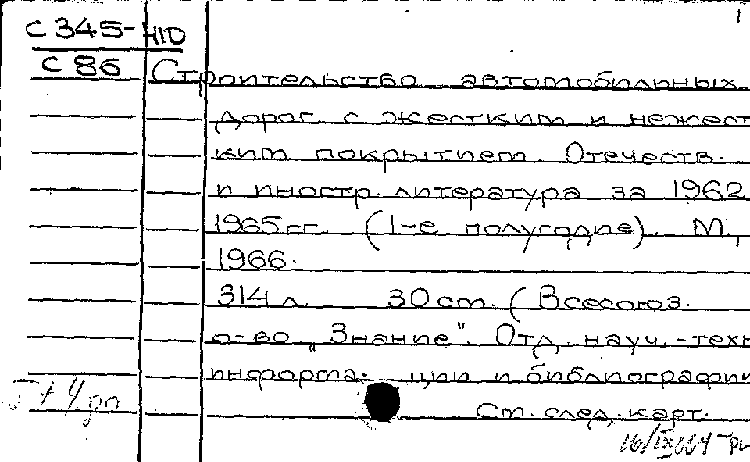 1
С 345-410
С 86
Строительство автомобильных
дорог с жестким и нежест
ким покрытием. Отечеств.
и иностр. литература за 1962
1965 гг. (1-е полугодие). М.,
1966.
314 л. 30 см. (Всесоюз.
о-во „Знание". Отд. науч.-техн
информа- ции и библиографии
См. след. карт.